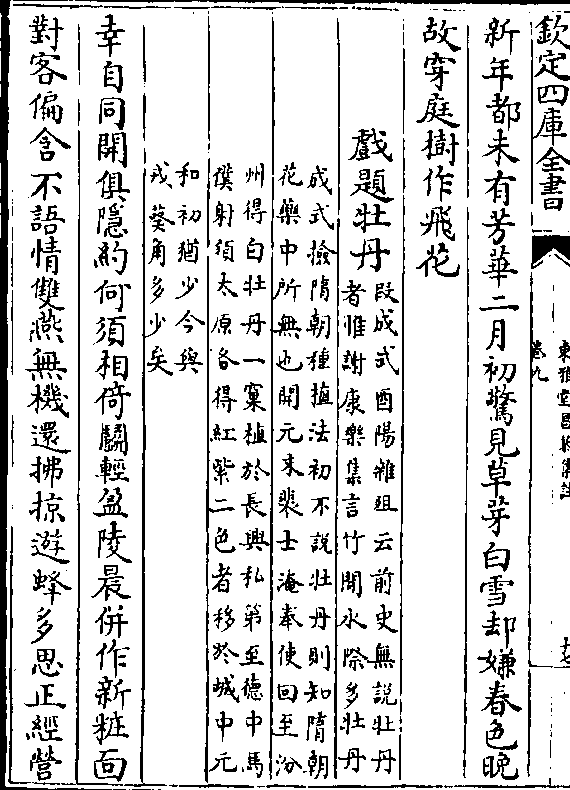 欽定四庫全書
東雅堂昌黎集註
卷九
新年都未有芳華二月初驚見草芽白雪却嫌春色晚
故穿庭樹作飛花
戲題牡丹
段成式酉陽雜俎云前史無說牡丹
者惟謝康樂集言竹間水際多牡丹
成式撿隋朝種植法初不說牡丹則知隋朝
花藥中所無也開元末裴士淹奉使回至汾
州得白牡丹一窠植於長興私第至德中馬
僕射領太原各得紅紫二色者移於城中元
和初猶少今與
戎葵角多少矣
幸自同開俱隱約何須相倚鬭輕盈陵晨併作新粧面
對客偏含不語情雙燕無機還拂掠遊蜂多思正經營